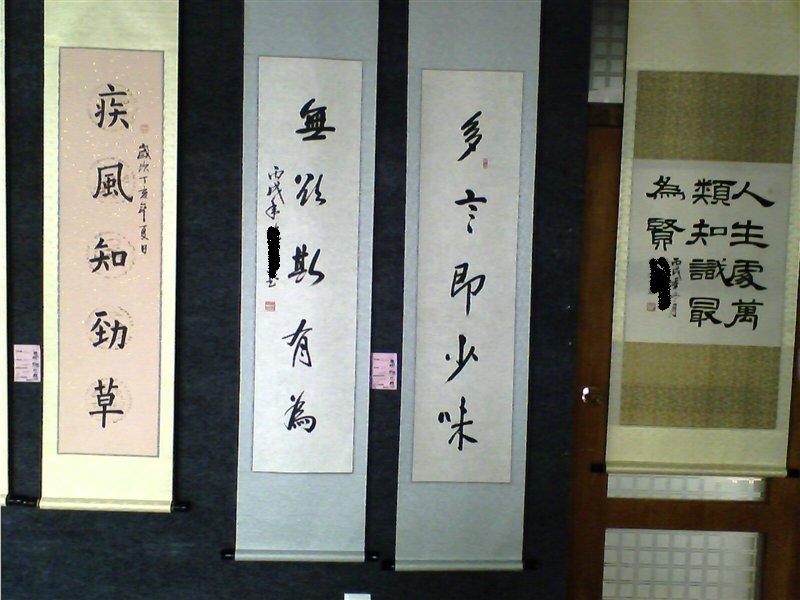 人生處萬
類知識最
為賢
多言即少味
無欲斯有為
丙戌年
歲次丁亥年夏日
疾風知勁草